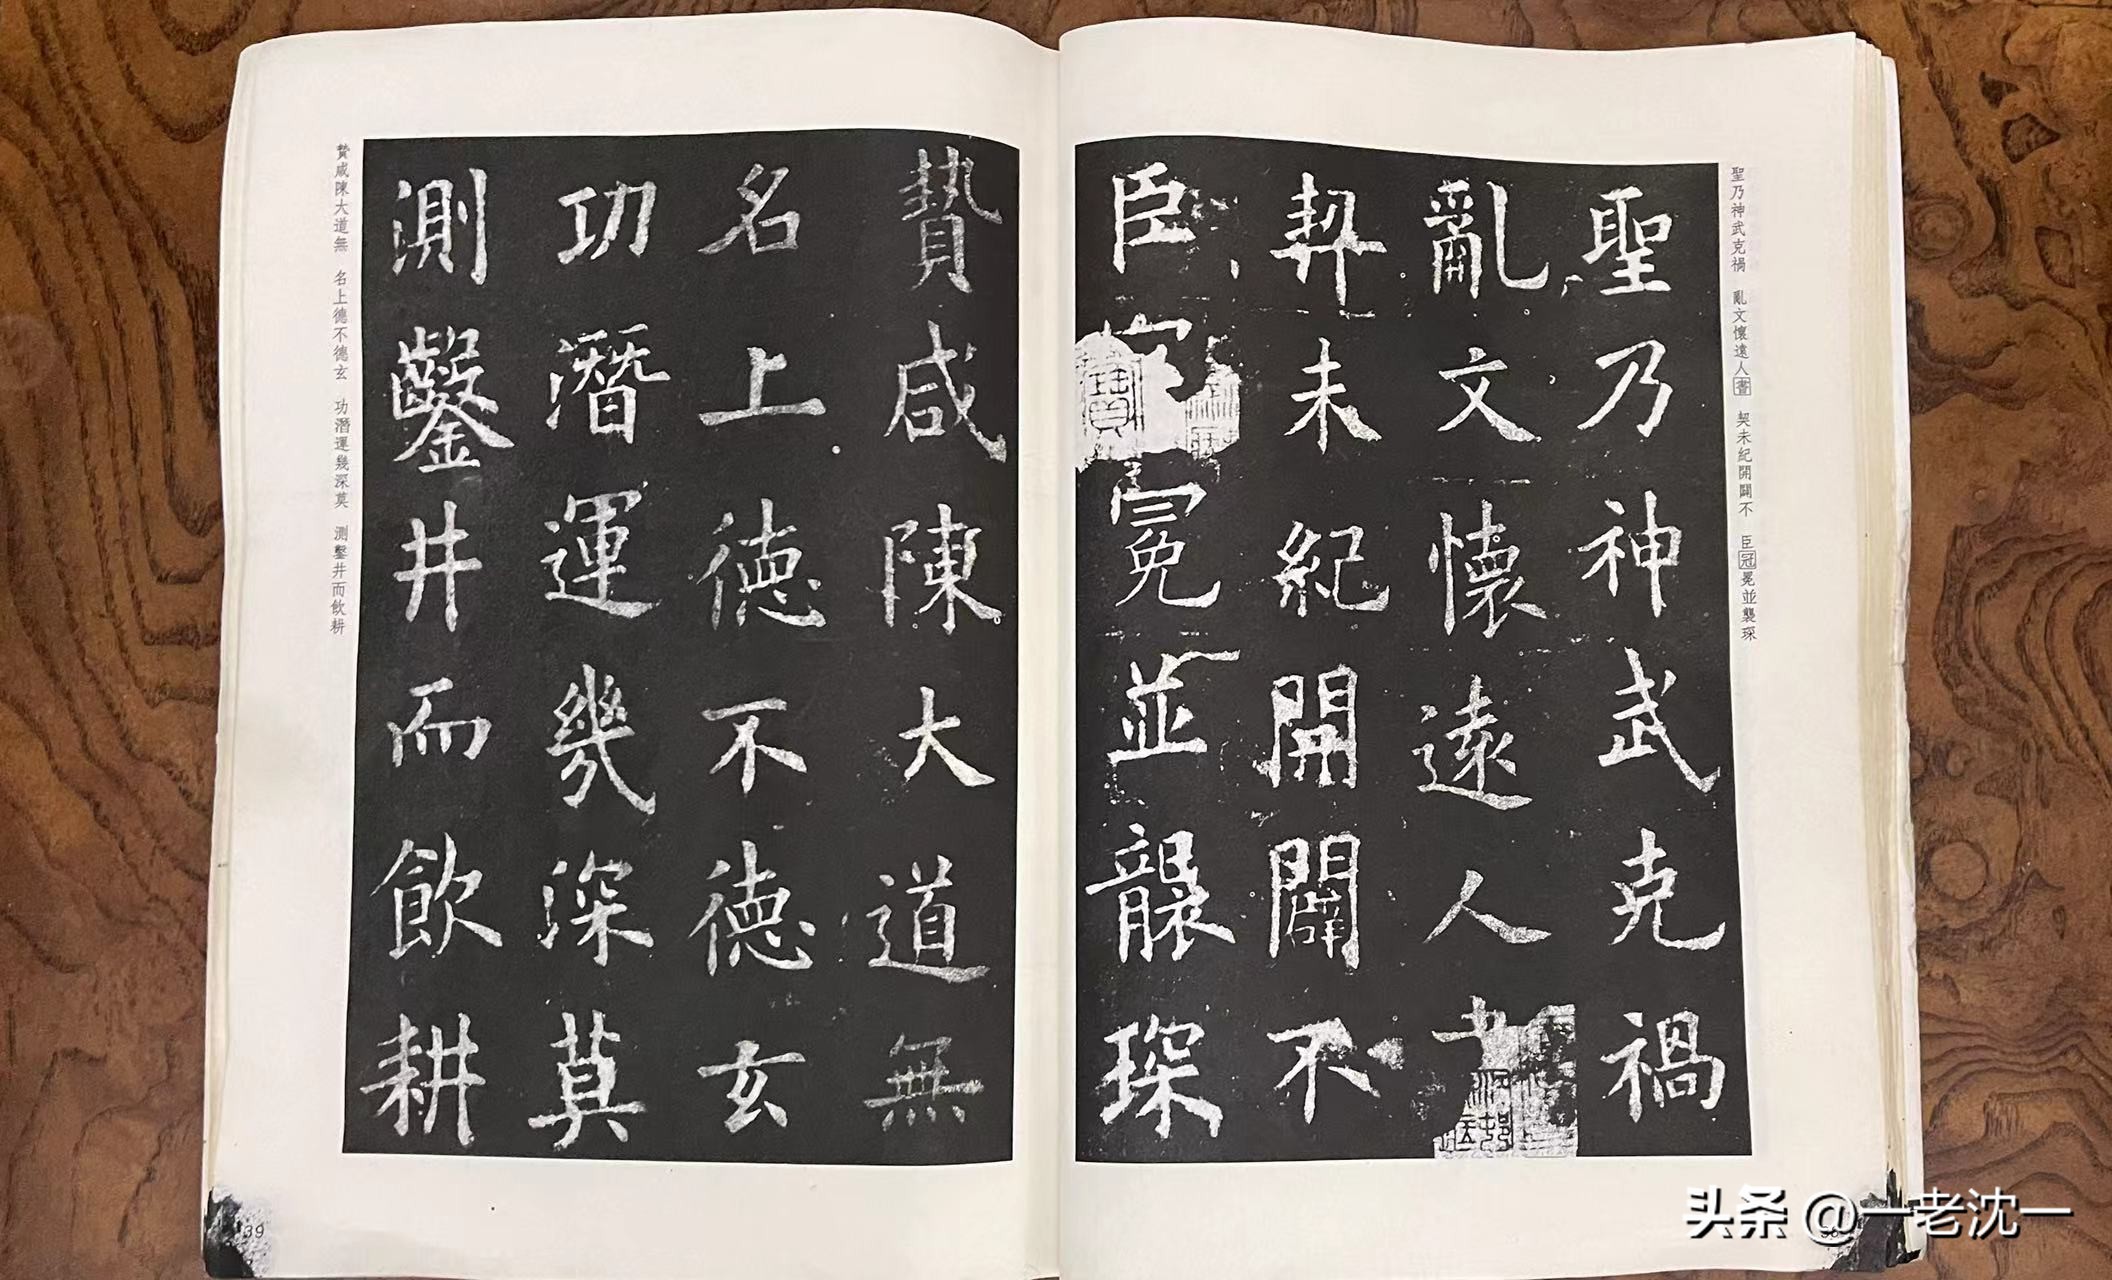 聖乃神武克禍
亂文懷遠人書
契未紀開闢不
臣冠冕並襲琛
聖乃神武克禍 亂文懷遠人書 契未紀開闢不 臣冠冕並襲琛
贄咸陳大道無
名上德不德玄
功潛運幾深莫
測鑿井而飲耕
贄咸陳大道無 名上德不德玄 功潛運幾深莫 測鑿井而飲耕
39
头条 @一老沈一